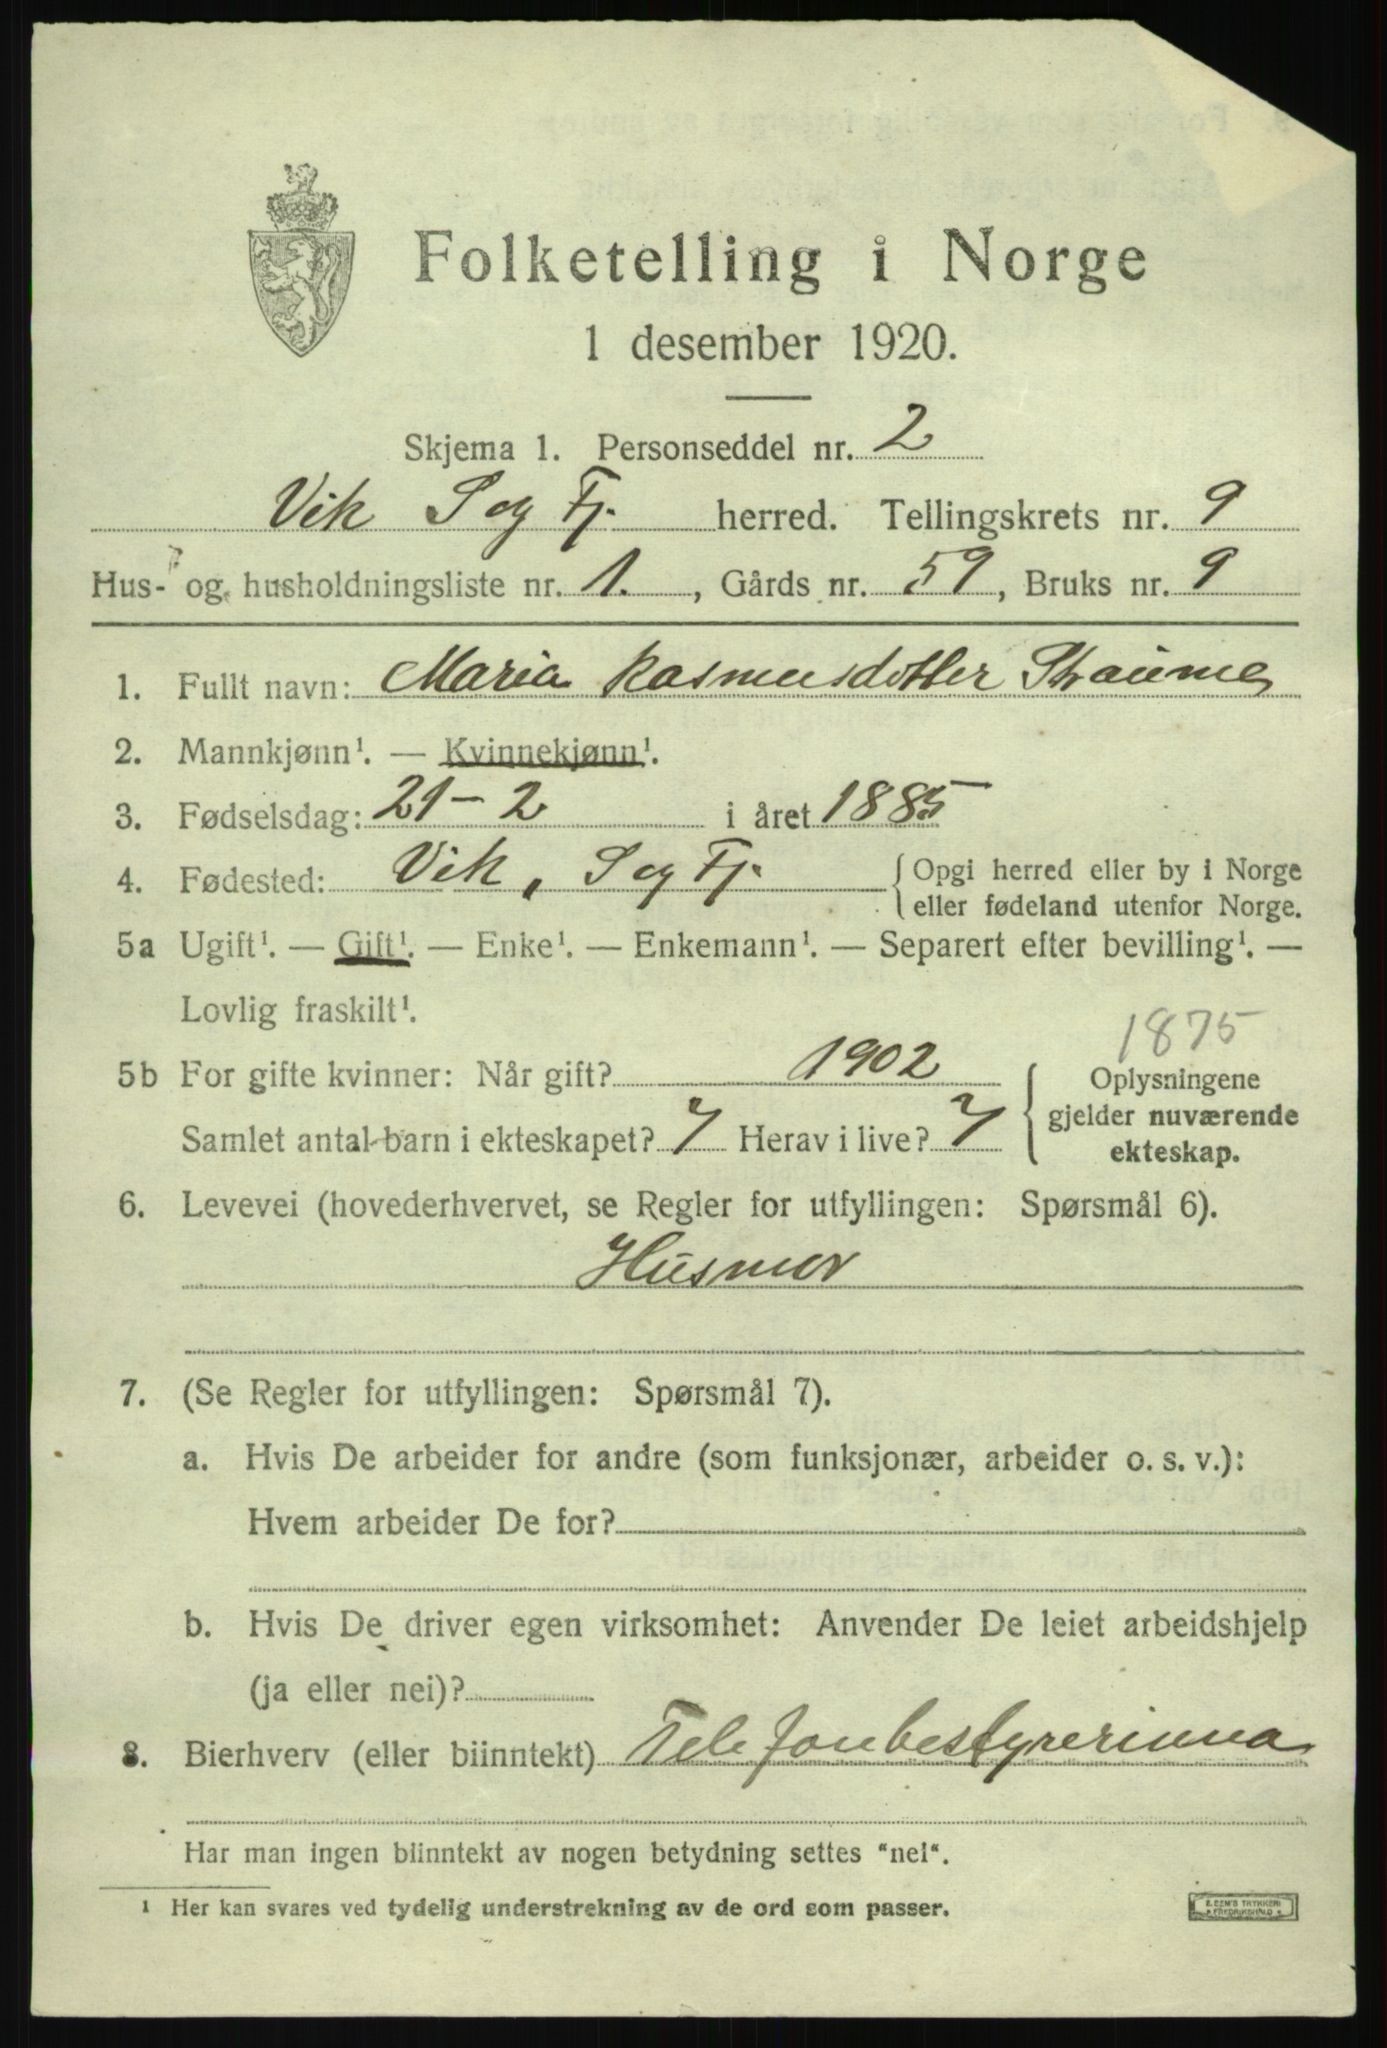 Folketelling i Norge
1 desember 1920.
Skjema 1. Personseddel nr. 2
Vik S og Fj. herred. Tellingskrets nr. 9
Hus- og husholdningsliste nr. 1., Gårds nr. 59, Bruks nr. 9
1. Fullt navn: Maria Rasmusdotter Straume
2. Mannkjønn¹. — Kvinnekjønn¹.
3. Fødselsdag: 21-2 i året 1885
4. Fødested: Vik, S og Fj. { Opgi herred eller by i Norge
eller fødeland utenfor Norge.
5a Ugift¹. — Gift¹. — Enke¹. — Enkemann¹. — Separert efter bevilling¹. —
Lovlig fraskilt¹.
1875
5b For gifte kvinner: Når gift? 1902
Samlet antal barn i ekteskapet? 7 Herav i live? 7
{ Oplysningene
gjelder nuværende
ekteskap.
6. Levevei (hovederhvervet, se Regler for utfyllingen: Spørsmål 6).
Husmor
7. (Se Regler for utfyllingen: Spørsmål 7).
a. Hvis De arbeider for andre (som funksjonær, arbeider o. s. v.):
Hvem arbeider De for?
b. Hvis De driver egen virksomhet: Anvender De leiet arbeidshjelp
(ja eller nei)?
8. Bierhverv (eller biinntekt) Telefonbestyrerinna
Har man ingen biinntekt av nogen betydning settes "nei".
¹ Her kan svares ved tydelig understrekning av de ord som passer.